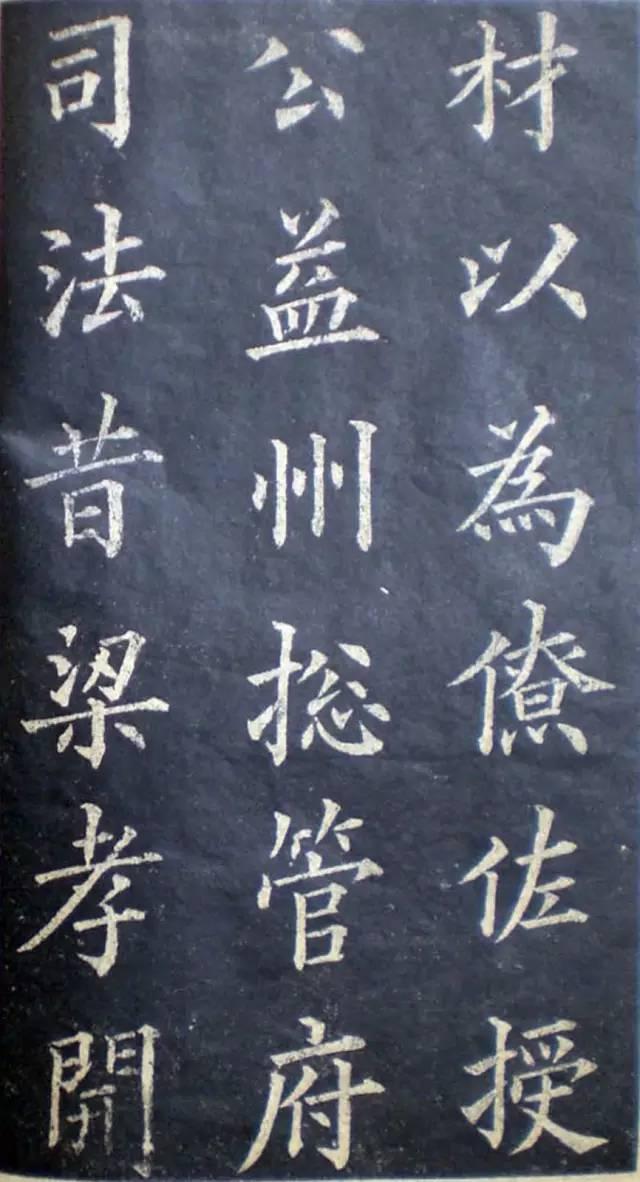 材以為僚佐授
公益州揔管府
司法昔梁孝開